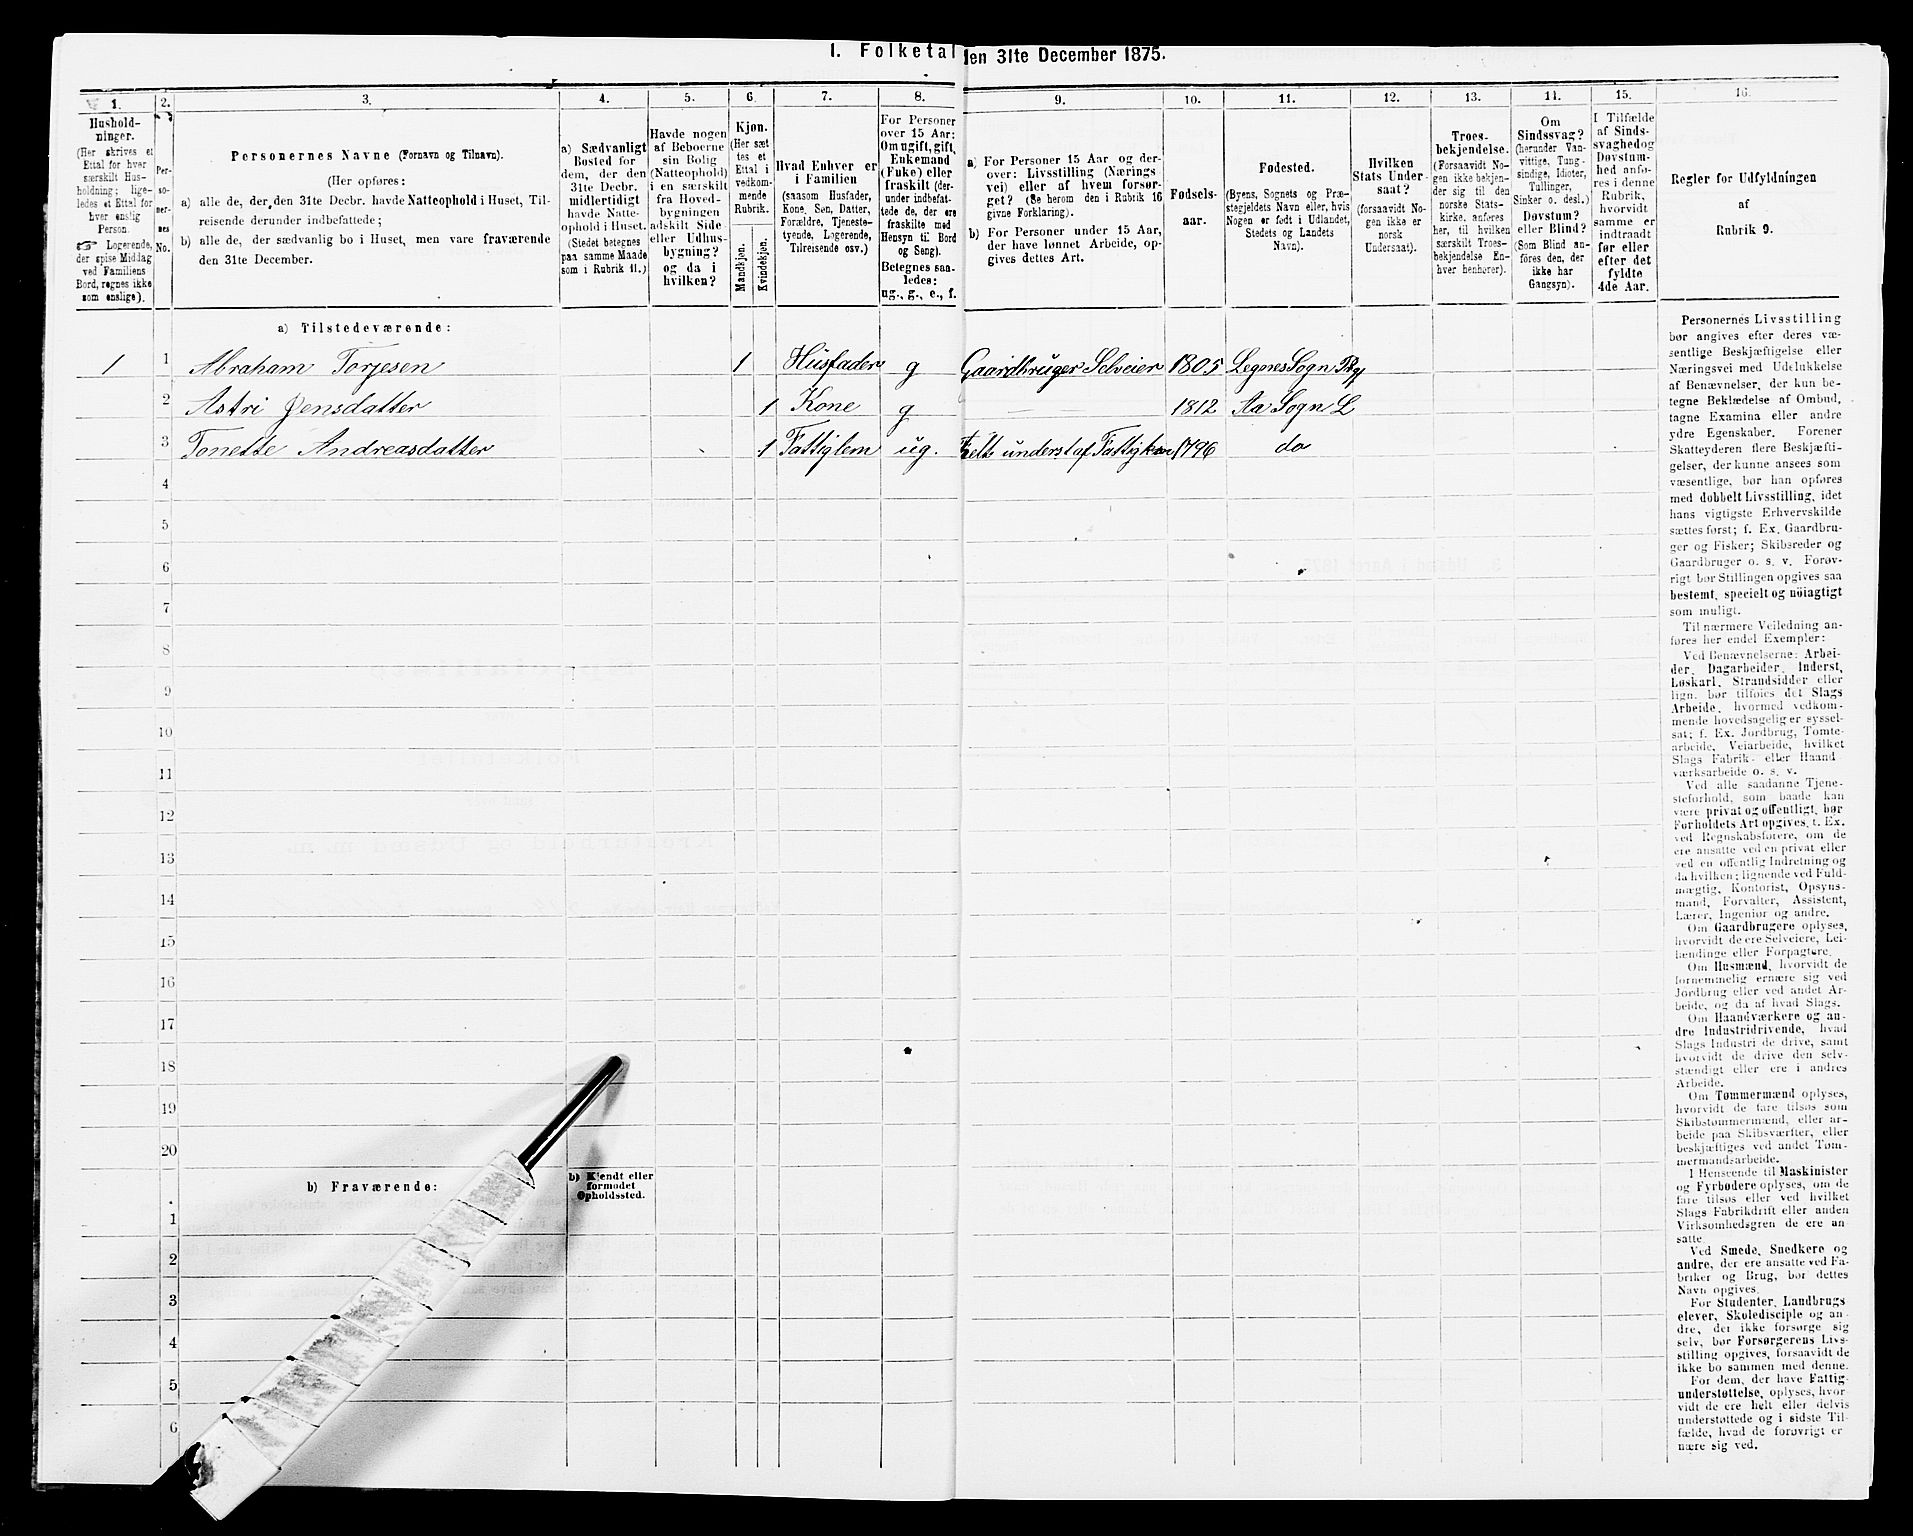 I. Folketal den 31te December 1875.
1.
2.
3.
4.
5.
6.
7.
8.
9.
10.
11.
12.
13.
14.
15.
16.
Hushold-
ninger.
(Her skrives et
Ettal for hver
særskilt Hus-
holdning; lige-
ledes et Ettal for
hver enslig
Person.
☞ Logerende,
der spise Middag
ved Familiens
Bord, regnes ikke
som enslige).
Per-
so-
ner-
nes
No.
Personernes Navne (Fornavn og Tilnavn).
(Her opføres:
a) alle de, der den 31te Decbr. havde Natteophold i Huset, Til-
reisende derunder indbefattede;
b) alle de, der sædvanlig bo i Huset, men vare fraværende
den 31te December.
a) Sædvanligt
Bosted for
dem, der den
31te Decbr.
midlertidigt
havde Natte-
ophold i Huset.
(Stedet betegnes
paa samme Maade
som i Rubrik 11.)
Havde nogen
af Beboerne
sin Bolig
(Natteophold)
i en særskilt
fra Hoved-
bygningen
adskilt Side-
eller Udhus-
bygning?
og da i
hvilken?
Kjøn.
(Her sæt
tes et
Ettal i
vedkom-
mende
Rubrik.
Mandkjøn.
Kvindekjøn.
Hvad Enhver er
i Familien
(saasom Husfader,
Kone, Søn, Datter,
Forældre, Tjeneste-
tyende, Logerende,
Tilreisende osv.)
For Personer
over 15 Aar:
Om ugift, gift,
Enkemand
(Enke) eller
fraskilt (der-
under indbefat-
tede de, der ere
fraskilte med
Hensyn til Bord
og Seng).
Betegnes saa-
ledes:
ug., g., e., f.
a) For Personer 15 Aar og der-
over: Livsstilling (Nærings
vei) eller af hvem forsør-
get? (Se herom den i Rubrik 16
givne Forklaring).
b) For Personer under 15 Aar,
der have lønnet Arbeide, op-
gives dettes Art.
Fødsels-
aar.
Fødested.
(Byens, Sognets og Præ-
stegjeldets Navn eller, hvis
Nogen er født i Udlandet,
Stedets og Landets
Navn).
Hvilken
Stats Under-
saat?
(forsaavidt No-
gen ikke er
norsk
Undersaat).
Troes-
bekjendelse.
(Forsaavidt No-
gen ikke bekjen-
der sig til den
norske Stats-
kirke, anføres
her, til hvilken
særskilt Troes-
bekjendelse En-
hver henhører).
Om
Sindssvag?
(herunder Van-
vittige, Tung-
sindige, Idioter,
Tullinger,
Sinker o. desl.)
Døvstum?
eller Blind?
(Som Blind an-
føres den, der
ikke har
Gangsyn).
I Tilfælde
af Sinds-
svaghed og
Døvstum-
hed anfø-
res i denne
Rubrik,
hvorvidt
samme er
indtraadt
før eller
efter det
fyldte
4de Aar.
Regler for Udfyldningen
af
Rubrik 9.
a) Tilstedeværende:
1 1 Abraham Torjesen 1 Husfader g Gaardbruger Selveier 1805
2 Astri Jensdatter 1 Kone g — 1812 Aa Sogn L
3 Tonette Andreasdatter 1 Fattiglem ug. 1796 do
4
5
6
7
8
9
10
11
12
13
14
15
16
17
18
19
20
b) Fraværende:
b) Kjendt eller
formodet
Opholdssted.
1
2
3
4
5
6
Personernes Livsstilling
bør angives efter deres væ-
sentlige Beskjæftigelse eller
Næringsvei med Udelukkelse
af Benævnelser, der kun be-
tegne Beklædelse af Ombud,
tagne Examina eller andre
ydre Egenskaber. Forener
Skatteyderen flere Beskjæfti-
gelser, der kunne ansees som
væsentlige, bør han opføres
med dobbelt Livsstilling, idet
hans vigtigste Erhvervskilde
sættes først; f. Ex. Gaardbru-
ger og Fisker; Skibsreder og
Gaardbruger o. s. v. Forøv-
rigt bør Stillingen opgives saa
bestemt, specielt og nöiagtigt
som muligt.
Til nærmere Veiledning an-
føres her endel Exempler:
Ved Benævnelserne: Arbei-
der, Dagarbeider, Inderst,
Løskarl, Strandsidder eller
lign. bør tilføies det Slags
Arbeide, hvormed vedkom-
mende hovedsagelig er syssel-
sat; f. Ex. Jordbrug, Tomte-
arbeide, Veiarbeide, hvilket
Slags Fabrik- eller Haand
værksarbeide o. s. v.
Ved alle saadanne Tjene-
steforhold, som baade kan
være privat og offentligt, bør
Forholdets Art opgives, f. Ex.
ved Regnskabsførere, om de
ere ansatte ved en privat eller
ved en offentlig Indretning og
da hvilken; lignende ved Fuld-
mægtig, Kontorist, Opsyns-
mand, Forvalter, Assistent,
Lærer, Ingeniør og andre.
Om Gaardbrugere oplyses,
hvorvidt de ere Selveiere, Lei-
lændinge eller Forpagtere.
Om Husmænd, hvorvidt de
fornemmelig ernære sig ved
Jordbrug eller ved andet Ar-
beide, og da af hvad Slags.
Om Haandværkere og an-
dre Industridrivende, hvad
Slags Industri de drive, samt
hvorvidt de drive den selv-
stændigt eller ere i andres
Arbeide.
Om Tømmermænd oplyses,
hvorvidt de fare tilsøs som
Skibstømmermænd, eller ar-
beide paa Skibsværfter, eller
beskjæftiges ved andet Tøm-
mermandsarbeide.
I Henseende til Maskinister
og Fyrbødere oplyses, om de
fare tilsøs eller ved hvilket
Slags Fabrikdrift eller anden
Virksomhedsgren de ere an-
satte.
Ved Smede, Snedkere og
andre, der ere ansatte ved Fa-
briker og Brug, bør dettes
Navn opgives.
For Studenter, Landbrugs
elever, Skoledisciple og an-
dre, der ikke forsørge sig
selv, bør Forsørgerens Livs-
stilling opgives, forsaavidt de
ikke bo sammen med denne.
For dem, der have Fattig-
understøttelse, oplyses, hvor-
vidt de ere helt eller delvis
understøttede og i sidste Til-
fælde, hvad de forøvrigt er
nære sig ved.